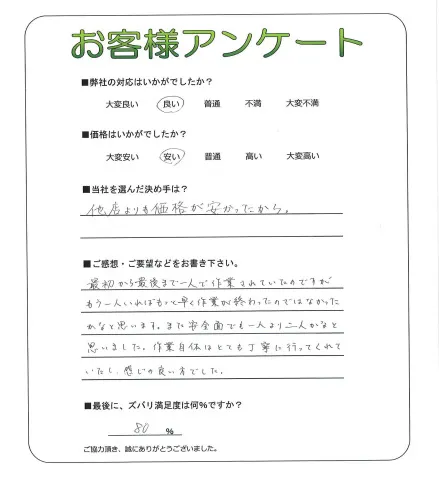 お客様アンケート
■弊社の対応はいかがでしたか？
大変良い 良い 普通 不満 大変不満
■価格はいかがでしたか？
大変安い 安い 普通 高い 大変高い
■当社を選んだ決め手は？
他店よりも価格が安かったから。
■ご感想・ご要望などをお書き下さい。
最初から最後まで一人で作業されていたのですが
もう一人いればもって早く作業が終わったのではなかった
かなと思います。また安全面でも一人より二人かなと
思いました。作業自体はとても丁寧に行ってくれて
いたし、感じの良い方でした。
■最後に、ズバリ満足度は何%ですか？
80 %
ご協力頂き、誠にありがとうございました。